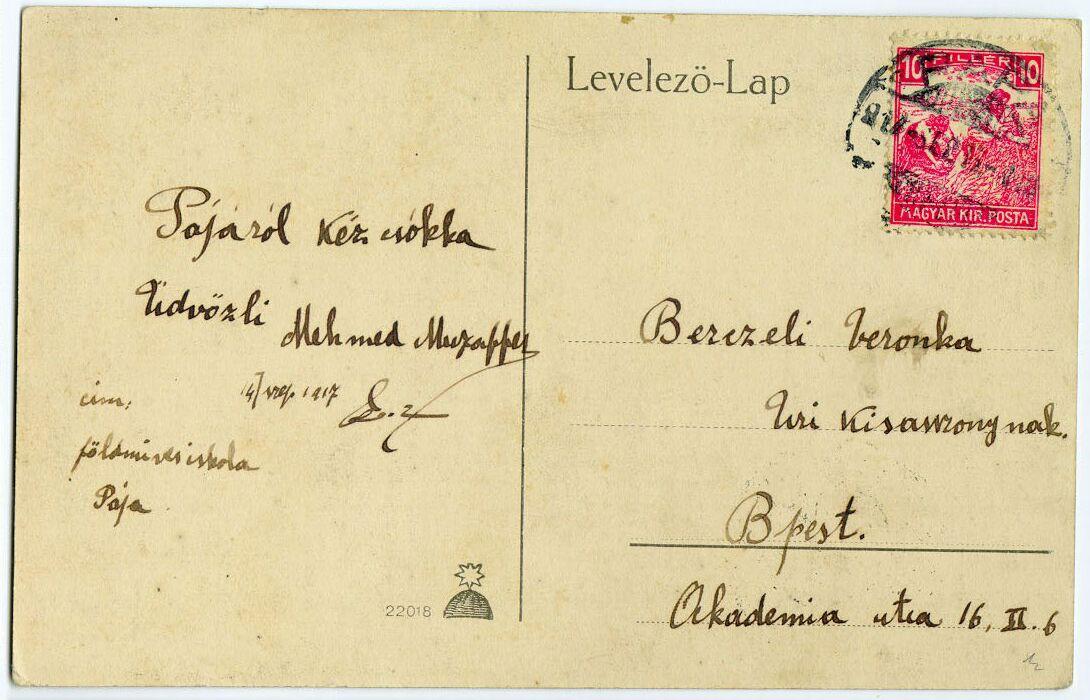 Levelező-Lap
10 FILLÉR 10
MAGYAR KIR. POSTA
Pájáról kéz csókka
Üdvözli
Mehmed Muzaffer
14/ szep. 1917
cím:
földmivesiskola
Pája
22018
Berczeli Veronka
Uri kisasszonynak.
Bpest.
Akademia utca 16. II. 6